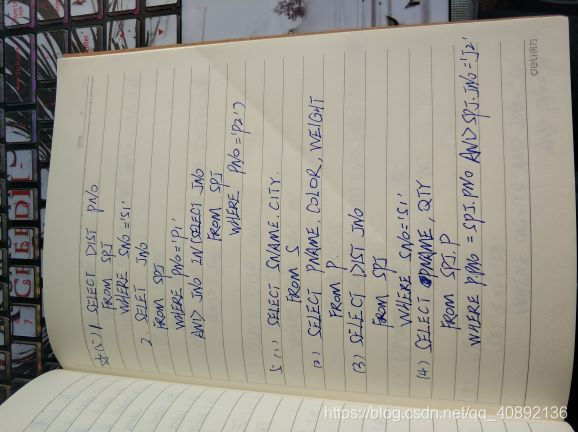 1. SELECT DIST PNO
FROM SPJ
WHERE SNO='S1'
2. SELET JNO
FROM SPJ
WHERE PNO='P1'
AND JNO IN(SELECT JNO
FROM SPJ
WHERE PNO='P2')
5 (1) SELECT SNAME.CITY.
FROM S
(2) SELECT PNAME.COLOR, WEIGHT
FROM P.
(3) SELECT DIST JNO
FROM SPJ
WHERE SNO='S1'
(4) SELECT PNAME, QTY
FROM SPJ.P
WHERE P.PNO=SPJ.PNO AND SPJ.JNO='J2'
deli
https://blog.csdn.net/qq_40892136